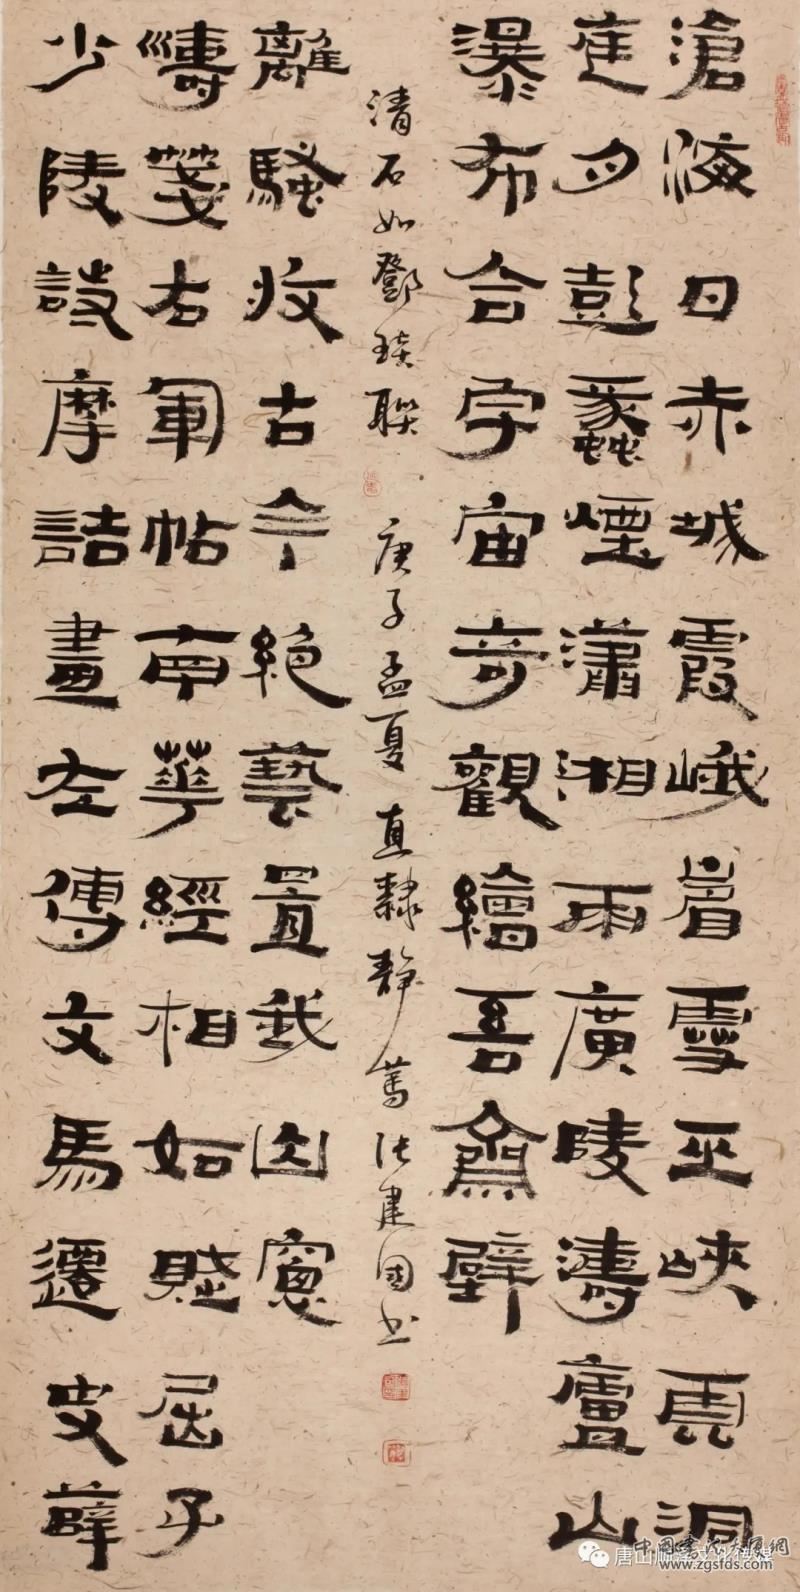 滄海日赤城霞峨眉雪巫峽雲洞
庭月彭蠡煙瀟湘雨廣陵濤廬山
瀑布合宇宙奇觀繪吾齋壁
少陵詩摩詰畫左傳文馬遷史薛
濤箋右軍帖南華經相如賦屈子
離騷收古今絕藝置我山窗
清石如鄧琰聯 庚子孟夏直隸靜篤張建國書
唐山文化传媒
www.zgsfds.com